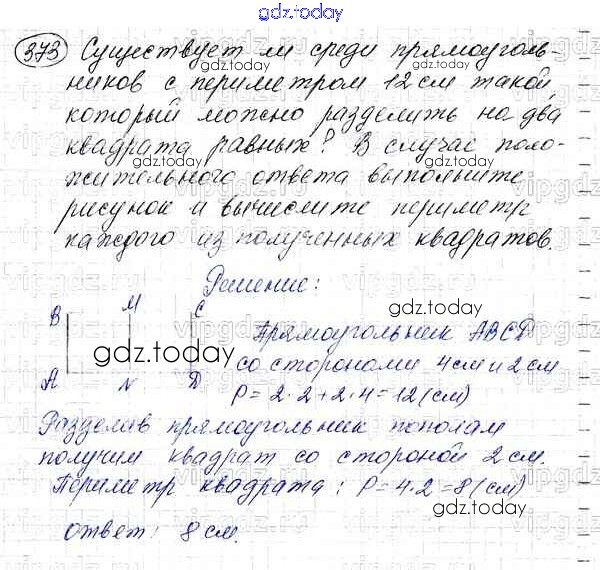 gdz.today
373 Существует ли среди прямоуголь-
ников с периметром 12 см такой,
который можно разделить на два
квадрата равных? В случае поло-
жительного ответа выполните
рисунок и вычислите периметр
каждого из полученных квадратов.
Решение:
B M C
A N D
Прямоугольник ABCD
со сторонами 4 см и 2 см
P = 2·2+2·4=12 (см)
Разделив прямоугольник пополам
получим квадрат со стороной 2 см.
Периметр квадрата: P=4·2=8 (см)
ответ: 8 см.
gdz.today